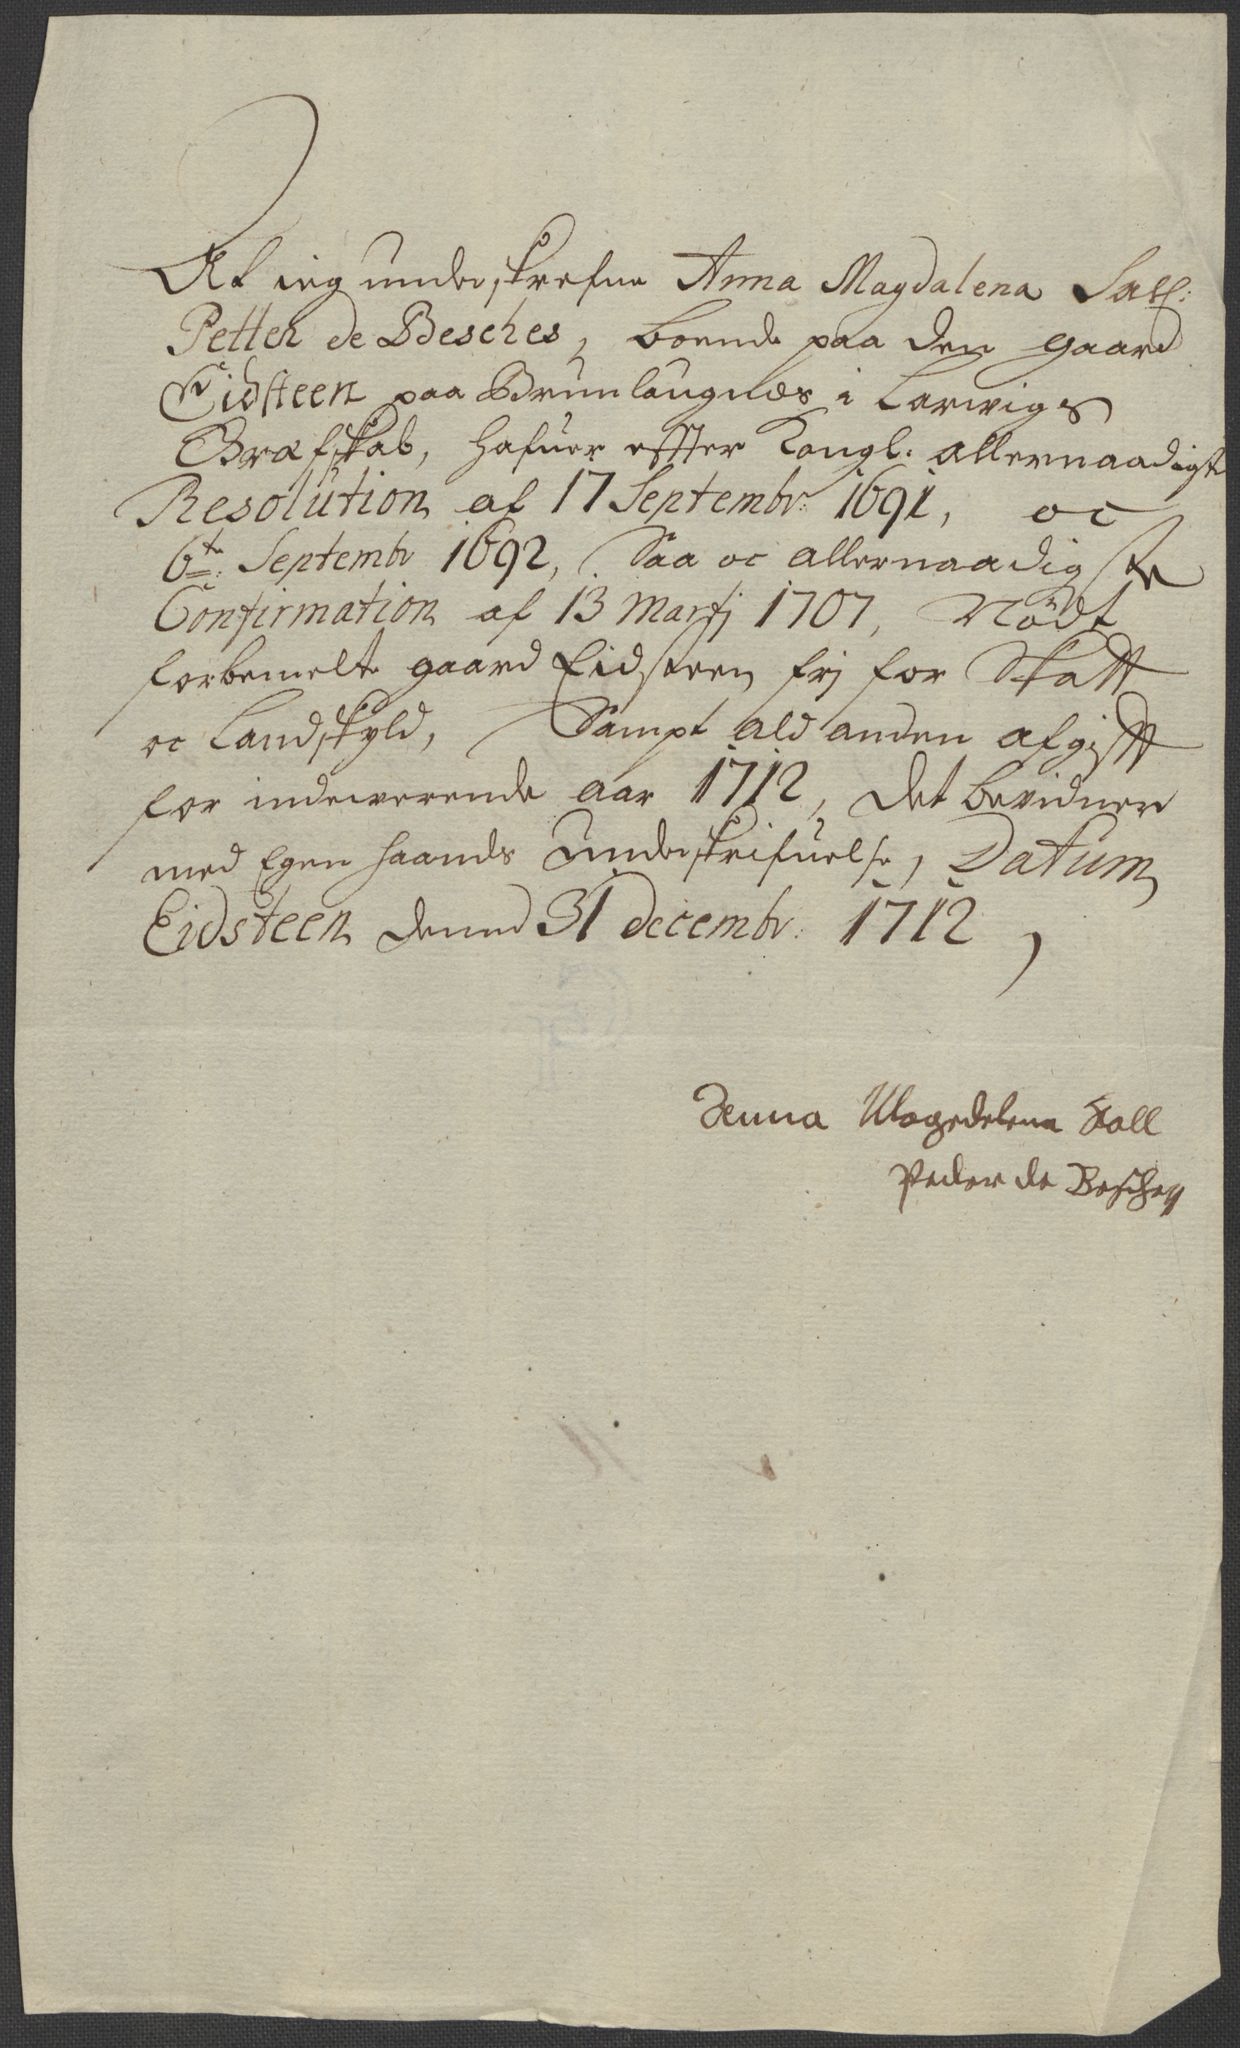 At ieg underskrefne Anna Magdalena Sall:
Petter de Besches, boende paa den gaard
Eidsteen paa Brunlaugnæs i Larwigs
Græfskab, hafuer effter Kongl. allernaadigste
Resolution af 17 Septembr: 1691, oc
6te: Septembr 1692, Saa oc allernaadigste
Confirmation af 13 Martij 1707, Nödt
forbemelte gaard Eidsteen frj for Skatt
oc Landskyld, Sampt ald anden afgifft
for indewerende aar 1712, det bevidner
med Egen haands Underskrifuelse, Datum
Eidsteen denn 31 decembr: 1712,
Anna Magedelena Sall
Peder de Besches